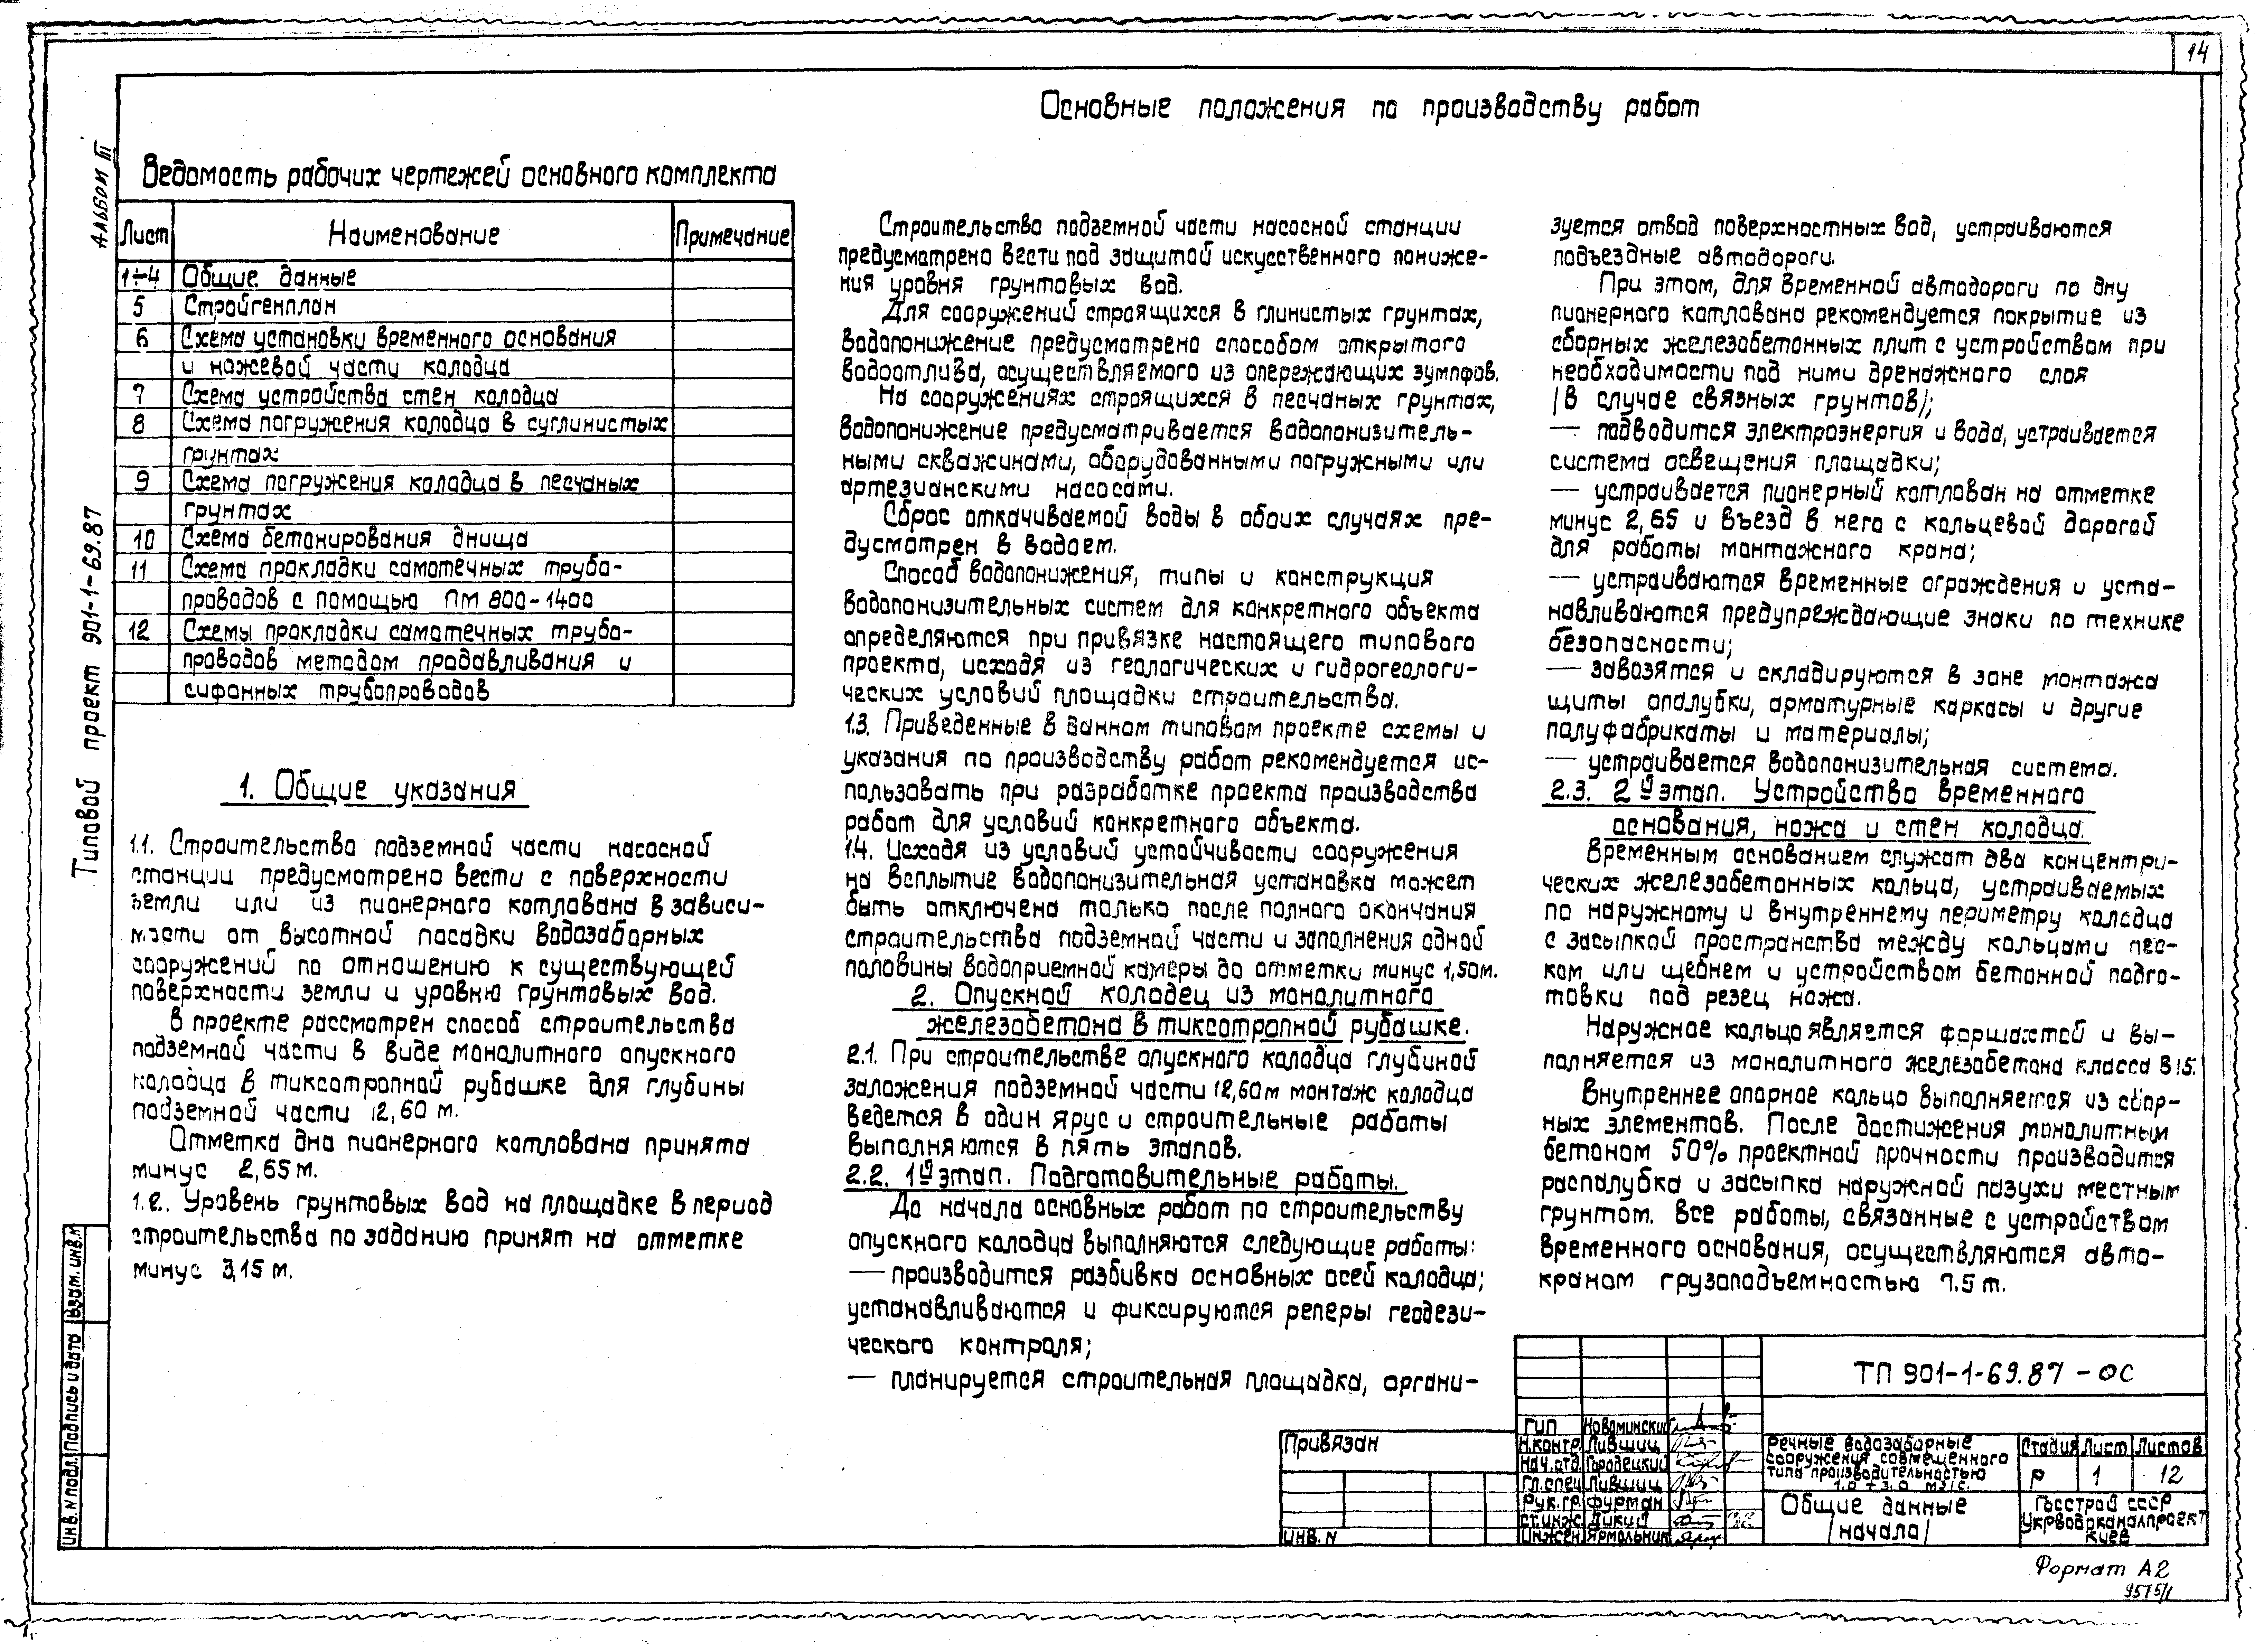 14
Альбом III
Типовой проект 901-1-69.87
Основные положения по производству работ
Ведомость рабочих чертежей основного комплекта
Лист Наименование Примечание
1÷4 Общие данные
5 Стройгенплан
6 Схема установки временного основания
и ножевой части колодца
7 Схема устройства стен колодца
8 Схема погружения колодца в суглинистых
грунтах
9 Схема погружения колодца в песчаных
грунтах
10 Схема бетонирования днища
11 Схема прокладки самотечных трубо-
проводов с помощью ПМ 800-1400
12 Схемы прокладки самотечных трубо-
проводов методом продавливания и
сифонных трубопроводов
1. Общие указания
1.1. Строительство подземной части насосной
станции предусмотрено вести с поверхности
земли или из пионерного котлована в зависи-
мости от высотной посадки водозаборных
сооружений по отношению к существующей
поверхности земли и уровню грунтовых вод.
В проекте рассмотрен способ строительства
подземной части в виде монолитного опускного
колодца в тиксотропной рубашке для глубины
подземной части 12,60 м.
Отметка дна пионерного котлована принята
минус 2,65 м.
1.2. Уровень грунтовых вод на площадке в период
строительства по заданию принят на отметке
минус 3,15 м.
Строительство подземной части насосной станции
предусмотрено вести под защитой искусственного пониже-
ния уровня грунтовых вод.
Для сооружений строящихся в глинистых грунтах,
водопонижение предусмотрено способом открытого
водоотлива, осуществляемого из опережающих зумпфов.
На сооружениях строящихся в песчаных грунтах,
водопонижение предусматривается водопонизитель-
ными скважинами, оборудованными погружными или
артезианскими насосами.
Сброс откачиваемой воды в обоих случаях пре-
дусмотрен в водоем.
Способ водопонижения, типы и конструкция
водопонизительных систем для конкретного объекта
определяются при привязке настоящего типового
проекта, исходя из геологических и гидрогеологи-
ческих условий площадки строительства.
1.3. Приведенные в данном типовом проекте схемы и
указания по производству работ рекомендуется ис-
пользовать при разработке проекта производства
работ для условий конкретного объекта.
1.4. Исходя из условий устойчивости сооружения
на всплытие водопонизительная установка может
быть отключена только после полного окончания
строительства подземной части и заполнения одной
половины водоприемной камеры до отметки минус 1,50м.
2. Опускной колодец из монолитного
железобетона в тиксотропной рубашке.
2.1. При строительстве опускного колодца глубиной
заложения подземной части 12,60м монтаж колодца
ведется в один ярус и строительные работы
выполняются в пять этапов.
2.2. 1й этап. Подготовительные работы.
До начала основных работ по строительству
опускного колодца выполняются следующие работы:
— производится разбивка основных осей колодца;
устанавливаются и фиксируются реперы геодези-
ческого контроля;
— планируется строительная площадка, органи-
зуется отвод поверхностных вод, устраиваются
подъездные автодороги.
При этом, для временной автодороги по дну
пионерного котлована рекомендуется покрытие из
сборных железобетонных плит с устройством при
необходимости под ними дренажного слоя
/в случае связных грунтов/;
— подводится электроэнергия и вода, устраивается
система освещения площадки;
— устраивается пионерный котлован на отметке
минус 2,65 и въезд в него с кольцевой дорогой
для работы монтажного крана;
— устраиваются временные ограждения и уста-
навливаются предупреждающие знаки по технике
безопасности;
— завозятся и складируются в зоне монтажа
щиты опалубки, арматурные каркасы и другие
полуфабрикаты и материалы;
— устраивается водопонизительная система.
2.3. 2й этап. Устройство временного
основания, ножа и стен колодца.
Временным основанием служат два концентри-
ческих железобетонных кольца, устраиваемых
по наружному и внутреннему периметру колодца
с засыпкой пространства между кольцами пес-
ком или щебнем и устройством бетонной подго-
товки под резец ножа.
Наружное кольцо является форшахтой и вы-
полняется из монолитного железобетона класса В15.
Внутреннее опорное кольцо выполняется из сбор-
ных элементов. После достижения монолитным
бетоном 50% проектной прочности производится
распалубка и засыпка наружной пазухи местным
грунтом. Все работы, связанные с устройством
временного основания, осуществляются авто-
краном грузоподъемностью 7.5 т.
Инв.N подл. Подпись и дата Взам. инв.N
Привязан
Инв. N
ГИП Новоминский
Н.контр. Лившиц
Нач.отд. Городецкий
Гл.спец. Лившиц
Рук.гр. Фурман
Ст.инж. Дикий
Инжен. Ярмольник
ТП 901-1-69.87 -ОС
Речные водозаборные
сооружения совмещенного
типа производительностью
1.0 ÷ 3.0 м3/с.
Стадия Лист Листов
Р 1 12
Общие данные
/начало/
Госстрой СССР
Укрводоканалпроект
Киев
Формат А2
9575/1